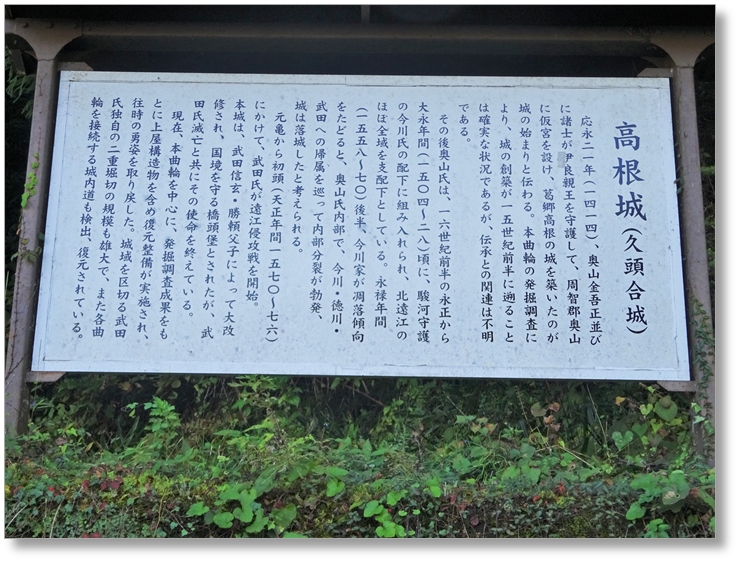 高根城(久頭合城)
応永二一年(一四一四)、奥山金吾正並び
に諸士が尹良親王を守護して、周智郡奥山
に仮宮を設け、葛郷高根の城を築いたのが
城の始まりと伝わる。本曲輪の発掘調査に
より、城の創築が一五世紀前半に遡ること
は確実な状況であるが、伝承との関連は不明
である。
その後奥山氏は、一六世紀前半の永正から
大永年間(一五〇四~二八)頃に、駿河守護
の今川氏の配下に組み入れられ、北遠江の
ほぼ全域を支配下としている。永禄年間
(一五五八~七〇)後半、今川家が凋落傾向
をたどると、奥山氏内部で、今川・徳川・
武田への帰属を巡って内部分裂が勃発、
城は落城したと考えられる。
元亀から初頭(天正年間一五七〇~七六)
にかけて、武田氏が遠江侵攻戦を開始。
本城は、武田信玄・勝頼父子によって大改
修され、国境を守る橋頭堡とされたが、武
田氏滅亡と共にその使命を終えている。
現在、本曲輪を中心に、発掘調査成果をも
とに上屋構造物を含め復元整備が実施され、
往時の勇姿を取り戻した。城域を区切る武田
氏独自の二重堀切の規模も雄大で、また各曲
輪を接続する城内道も検出、復元されている。